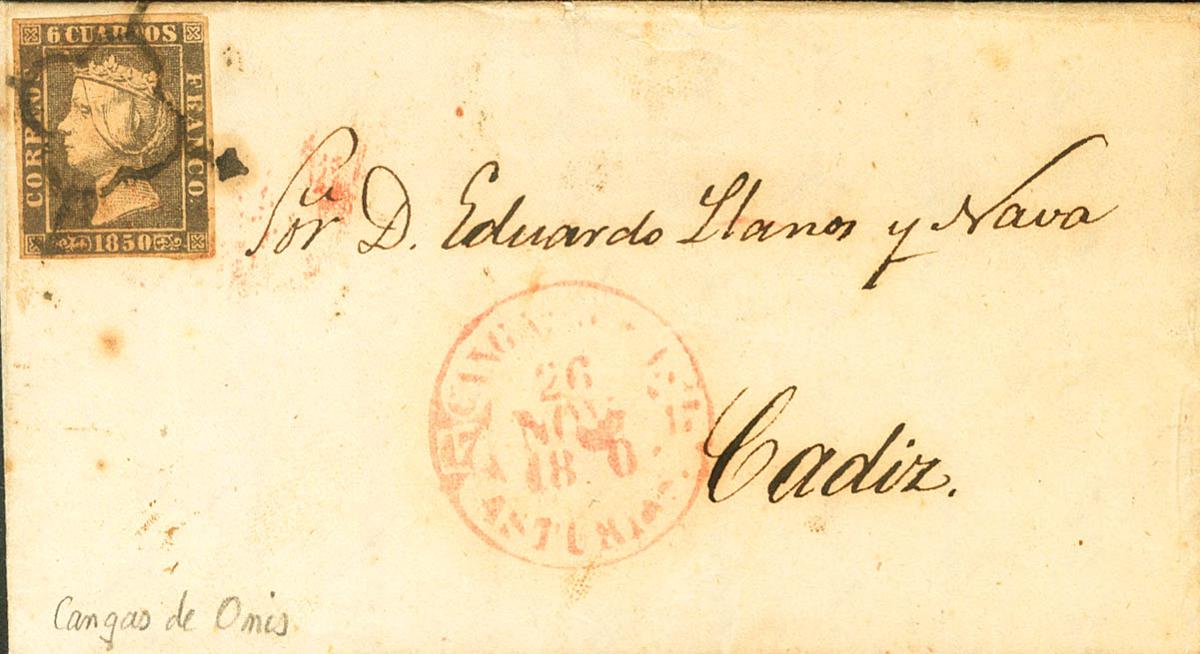 6 CUARTOS
CORREOS
FRANCO.
1850
Sor. D. Eduardo Llanos y Nava
26
NOV
18 0
ASTURIAS
Cadiz.
Cangas de Onis